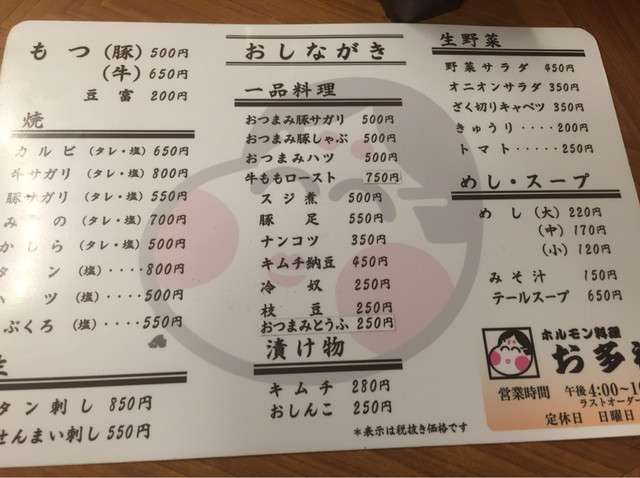 もつ(豚) 500円
(牛) 650円
豆富 200円
焼
カルビ (タレ・塩) 650円
牛サガリ (タレ・塩) 800円
豚サガリ (タレ・塩) 550円
みの (タレ・塩) 700円
かしら (タレ・塩) 500円
タン (塩)‥‥800円
ハツ (塩)‥‥500円
ぶくろ (塩)‥‥550円
タン刺し 850円
せんまい刺し 550円
おしながき
一品料理
おつまみ豚サガリ 500円
おつまみ豚しゃぶ 500円
おつまみハツ 500円
牛ももロースト 750円
スジ煮 500円
豚足 550円
ナンコツ 350円
キムチ納豆 450円
冷奴 250円
枝豆 250円
おつまみとうふ 250円
漬け物
キムチ 280円
おしんこ 250円
*表示は税抜き価格です
生野菜
野菜サラダ 450円
オニオンサラダ 350円
ざく切りキャベツ 350円
きゅうり‥‥200円
トマト‥‥‥250円
めし・スープ
めし (大) 220円
(中) 170円
(小) 120円
みそ汁 150円
テールスープ 650円
ホルモン料理
お多
営業時間 午後4:00〜1
ラストオーダー
定休日 日曜日